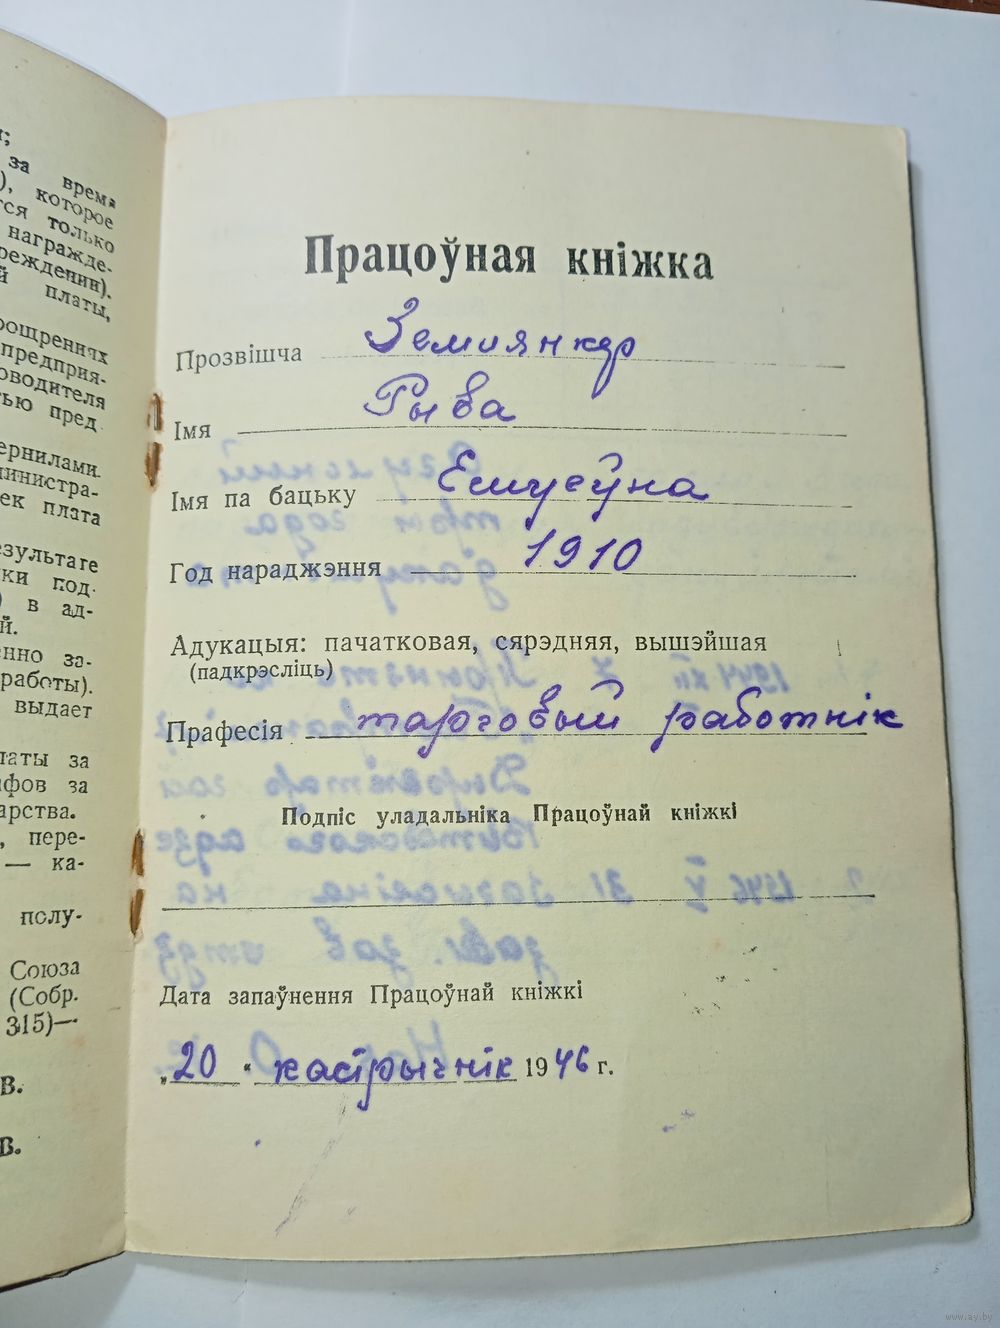 и;
за время
), которое
тся только
награжде-
реждении).
й платы,
ощрениях
предприя-
оводителя
тью пред
ернилами.
министра-
ек плата
езультате
ки под-
) в ад-
й.
нно за-
работы).
выдает
латы за
фов за
арства.
, пере-
— ка-
полу-
Союза
(Собр.
315)—
В.
В.
Працоўная кніжка
Прозвішча
Імя Рыва
Імя па бацьку
Год нараджэння 1910
Адукацыя: пачатковая, сярэдняя, вышэйшая
(падкрэсліць)
Прафесія тарговый работнік
Подпіс уладальніка Працоўнай кніжкі
Дата запаўнення Працоўнай кніжкі
„20“ кастрычнік 1946 г.
www.ay.by